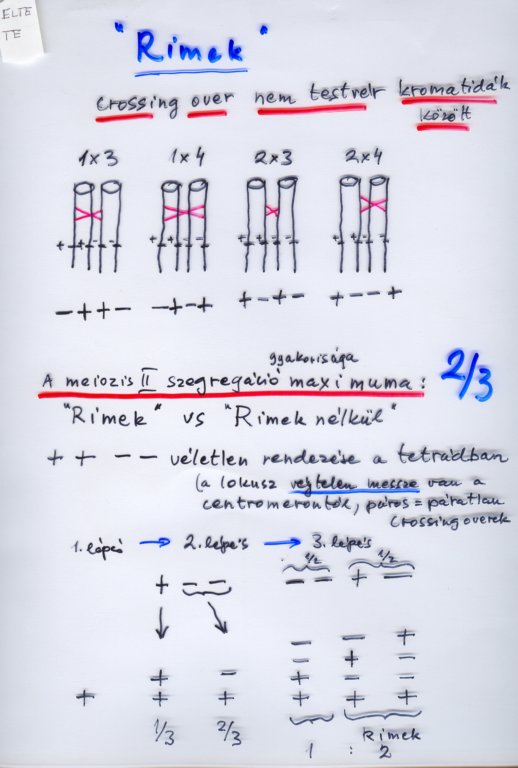 ELTE
TE
"Rimek"
crossing over nem testvér kromatidák
között
1×3 1×4 2×3 2×4
+ + - - + + - - + + - - + + - -
- + + - - + - + + - + - + - - +
gyakorisága
A meiozis II szegregáció maximuma: 2/3
"Rimek" vs "Rimek nélkül"
+ + - - véletlen rendezése a tetrádban
(a lokusz végtelen messze van a
centromerontók, páros = páratlan
crossing overek
1. lépés → 2. lépés → 3. lépés
1/2 1/2
+ - - - - + -
- - +
- + -
+ - + - -
+ + + + + +
1/3 2/3 Rimek
1 : 2